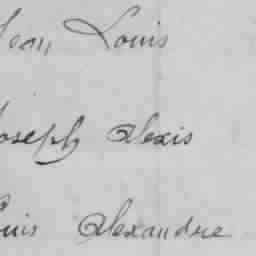 Jean Louis
Joseph Alexis
Louis Alexandre